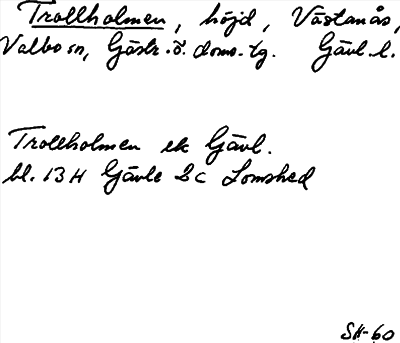 Trollholmen, höjd, Västanås,
Valbo sn, Gästr. ö. doms. tg. Gävl. l.
Trollholmen ek Gävl.
bl. 13 H Gävle 2c Lomshed
SH-60